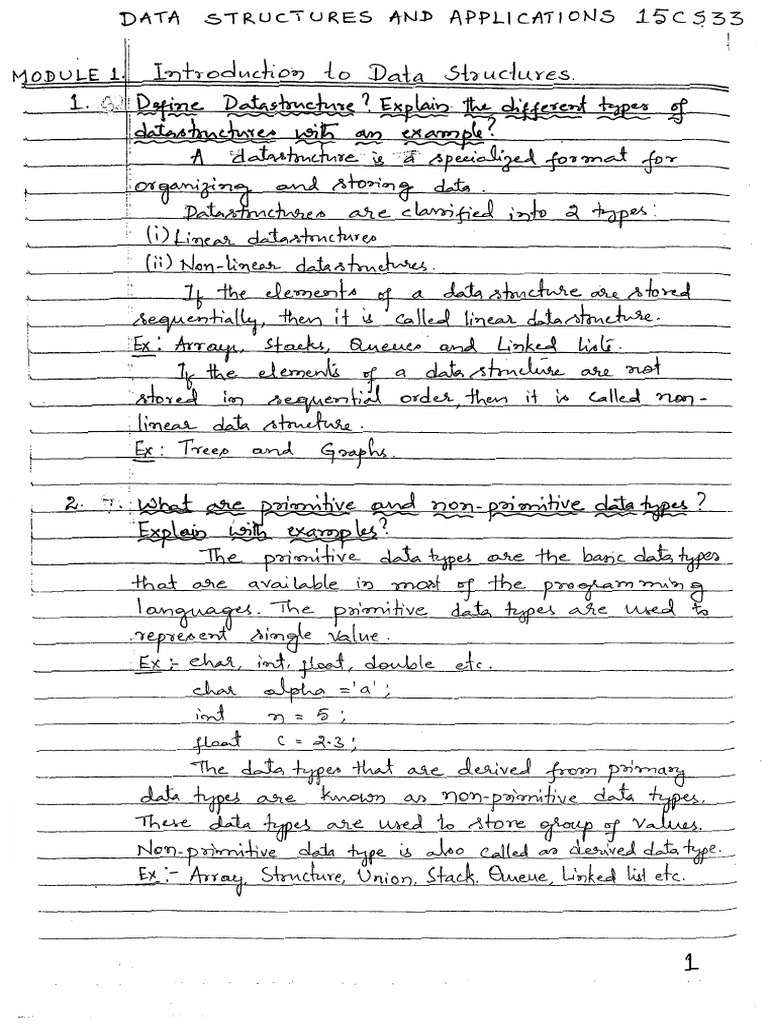 DATA STRUCTURES AND APPLICATIONS 15CS33
MODULE 1. Introduction to Data Structures.
1. Define Datastructure? Explain the different types of
datastructures with an example?
A datastructure is a specialized format for
organizing and storing data.
Datastructures are classified into 2 types:
(i) Linear datastructures
(ii) Non-linear datastructures.
If the elements of a data structure are stored
sequentially, then it is called linear data structure.
Ex: Arrays, Stacks, Queues and Linked lists.
If the elements of a data structure are not
stored in sequential order, then it is called non-
linear data structure.
Ex: Trees and Graphs.
2. What are primitive and non-primitive data types?
Explain with examples?
The primitive data types are the basic data types
that are available in most of the programming
languages. The primitive data types are used to
represent single value.
Ex:- char, int, float, double etc.
char alpha = 'a';
int n = 5;
float c = 2.3;
The data types that are derived from primary
data types are known as non-primitive data types.
These data types are used to store group of values.
Non-primitive data type is also called as derived data type.
Ex:- Array, Structure, Union, Stack. Queue, Linked list etc.
1